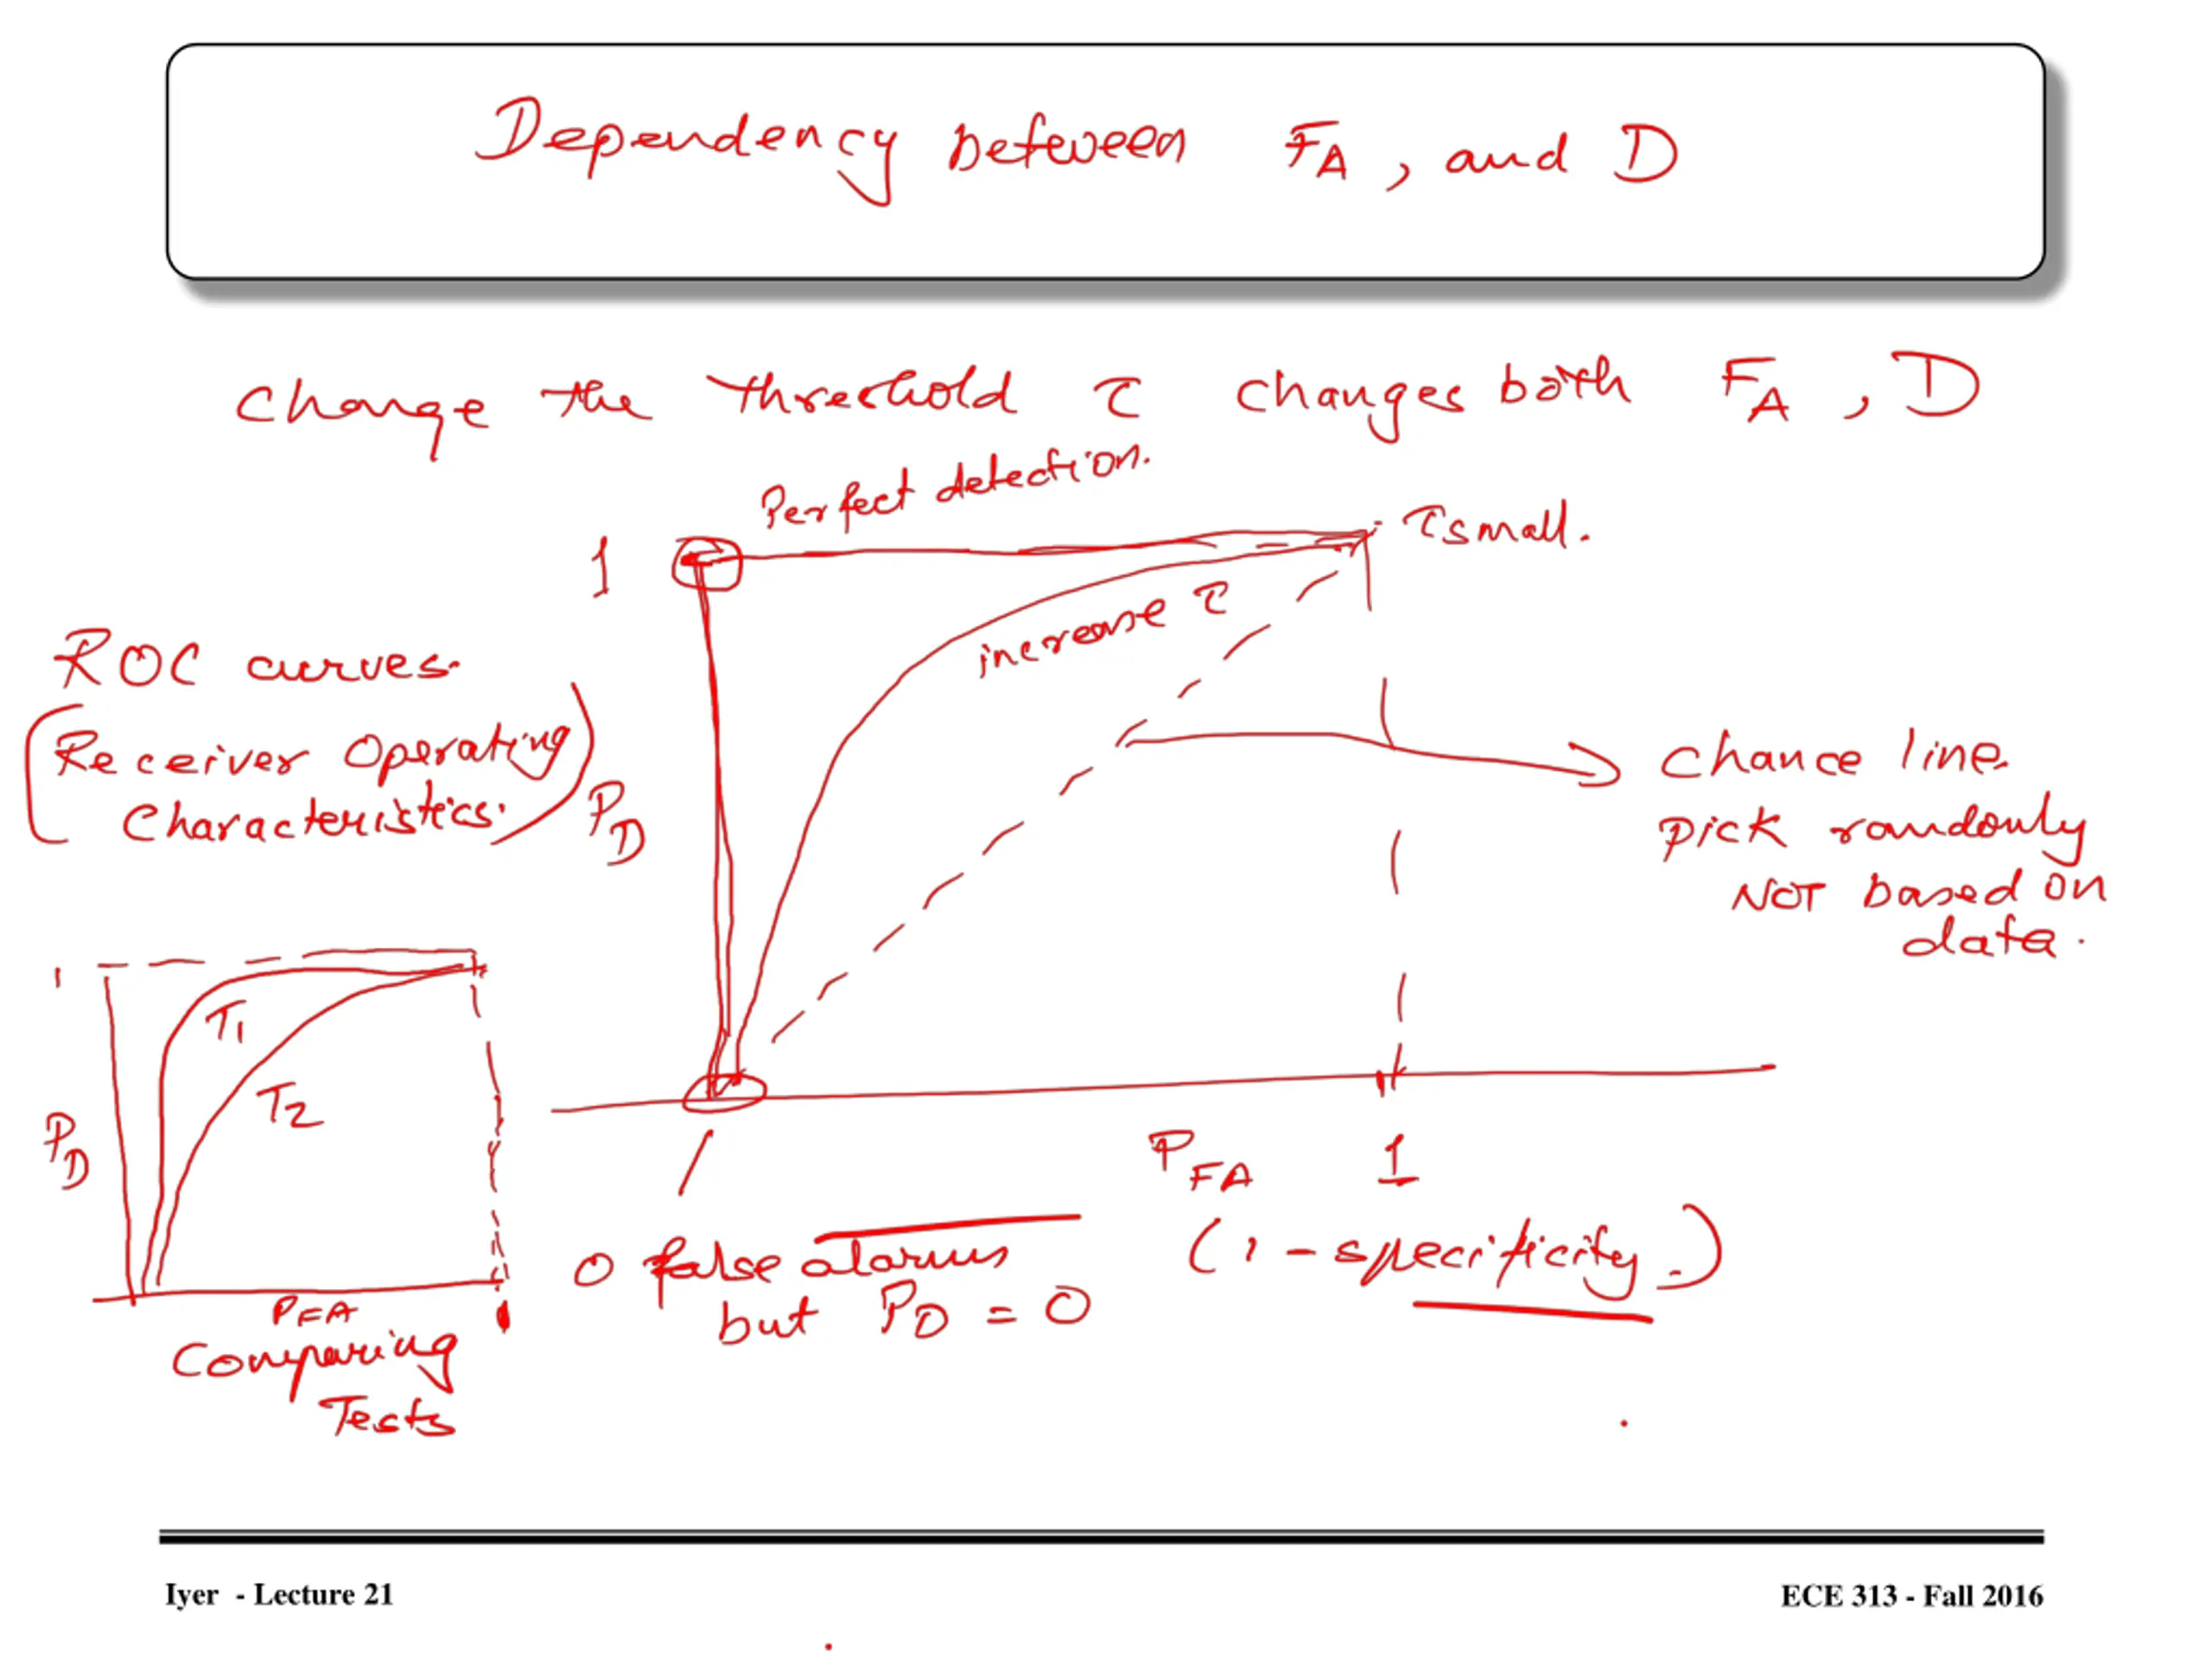 Dependency between FA, and D
Change the threshold τ changes both FA, D
Perfect detection.
1
τ small.
increase τ
ROC curves.
(Receiver Operating
Characteristics.)
PD
Chance line.
Pick randomly
NOT based on
data.
1
T1
T2
PD
PFA
1
PFA
Comparing
Tests
0 false alarms
but PD = 0
(1 - specificity.)
Iyer - Lecture 21
ECE 313 - Fall 2016